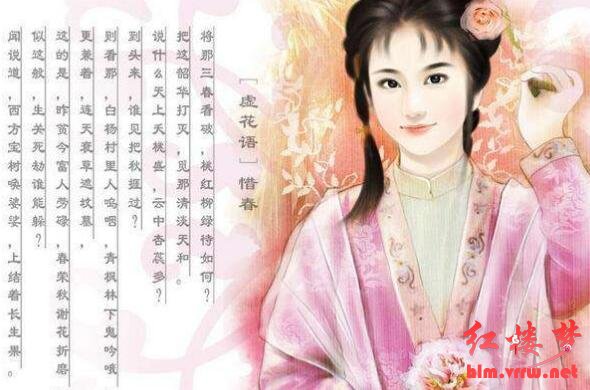 [虚花语] 惜春
将那三春看破,桃红柳绿待如何?
把这韶华打灭,觅那清淡天和。
说什么天上夭桃盛,云中杏蕊多?
到头来,谁见把秋捱过?
则看那,白杨村里人呜咽,青枫林下鬼吟哦
更兼着,连天衰草遮坟墓,
这的是,昨贫今富人劳碌,春荣秋谢花折磨
似这般,生关死劫谁能躲?
闻说道,西方宝树唤婆娑,上结着长生果。
红楼梦
blm.vrrw.net